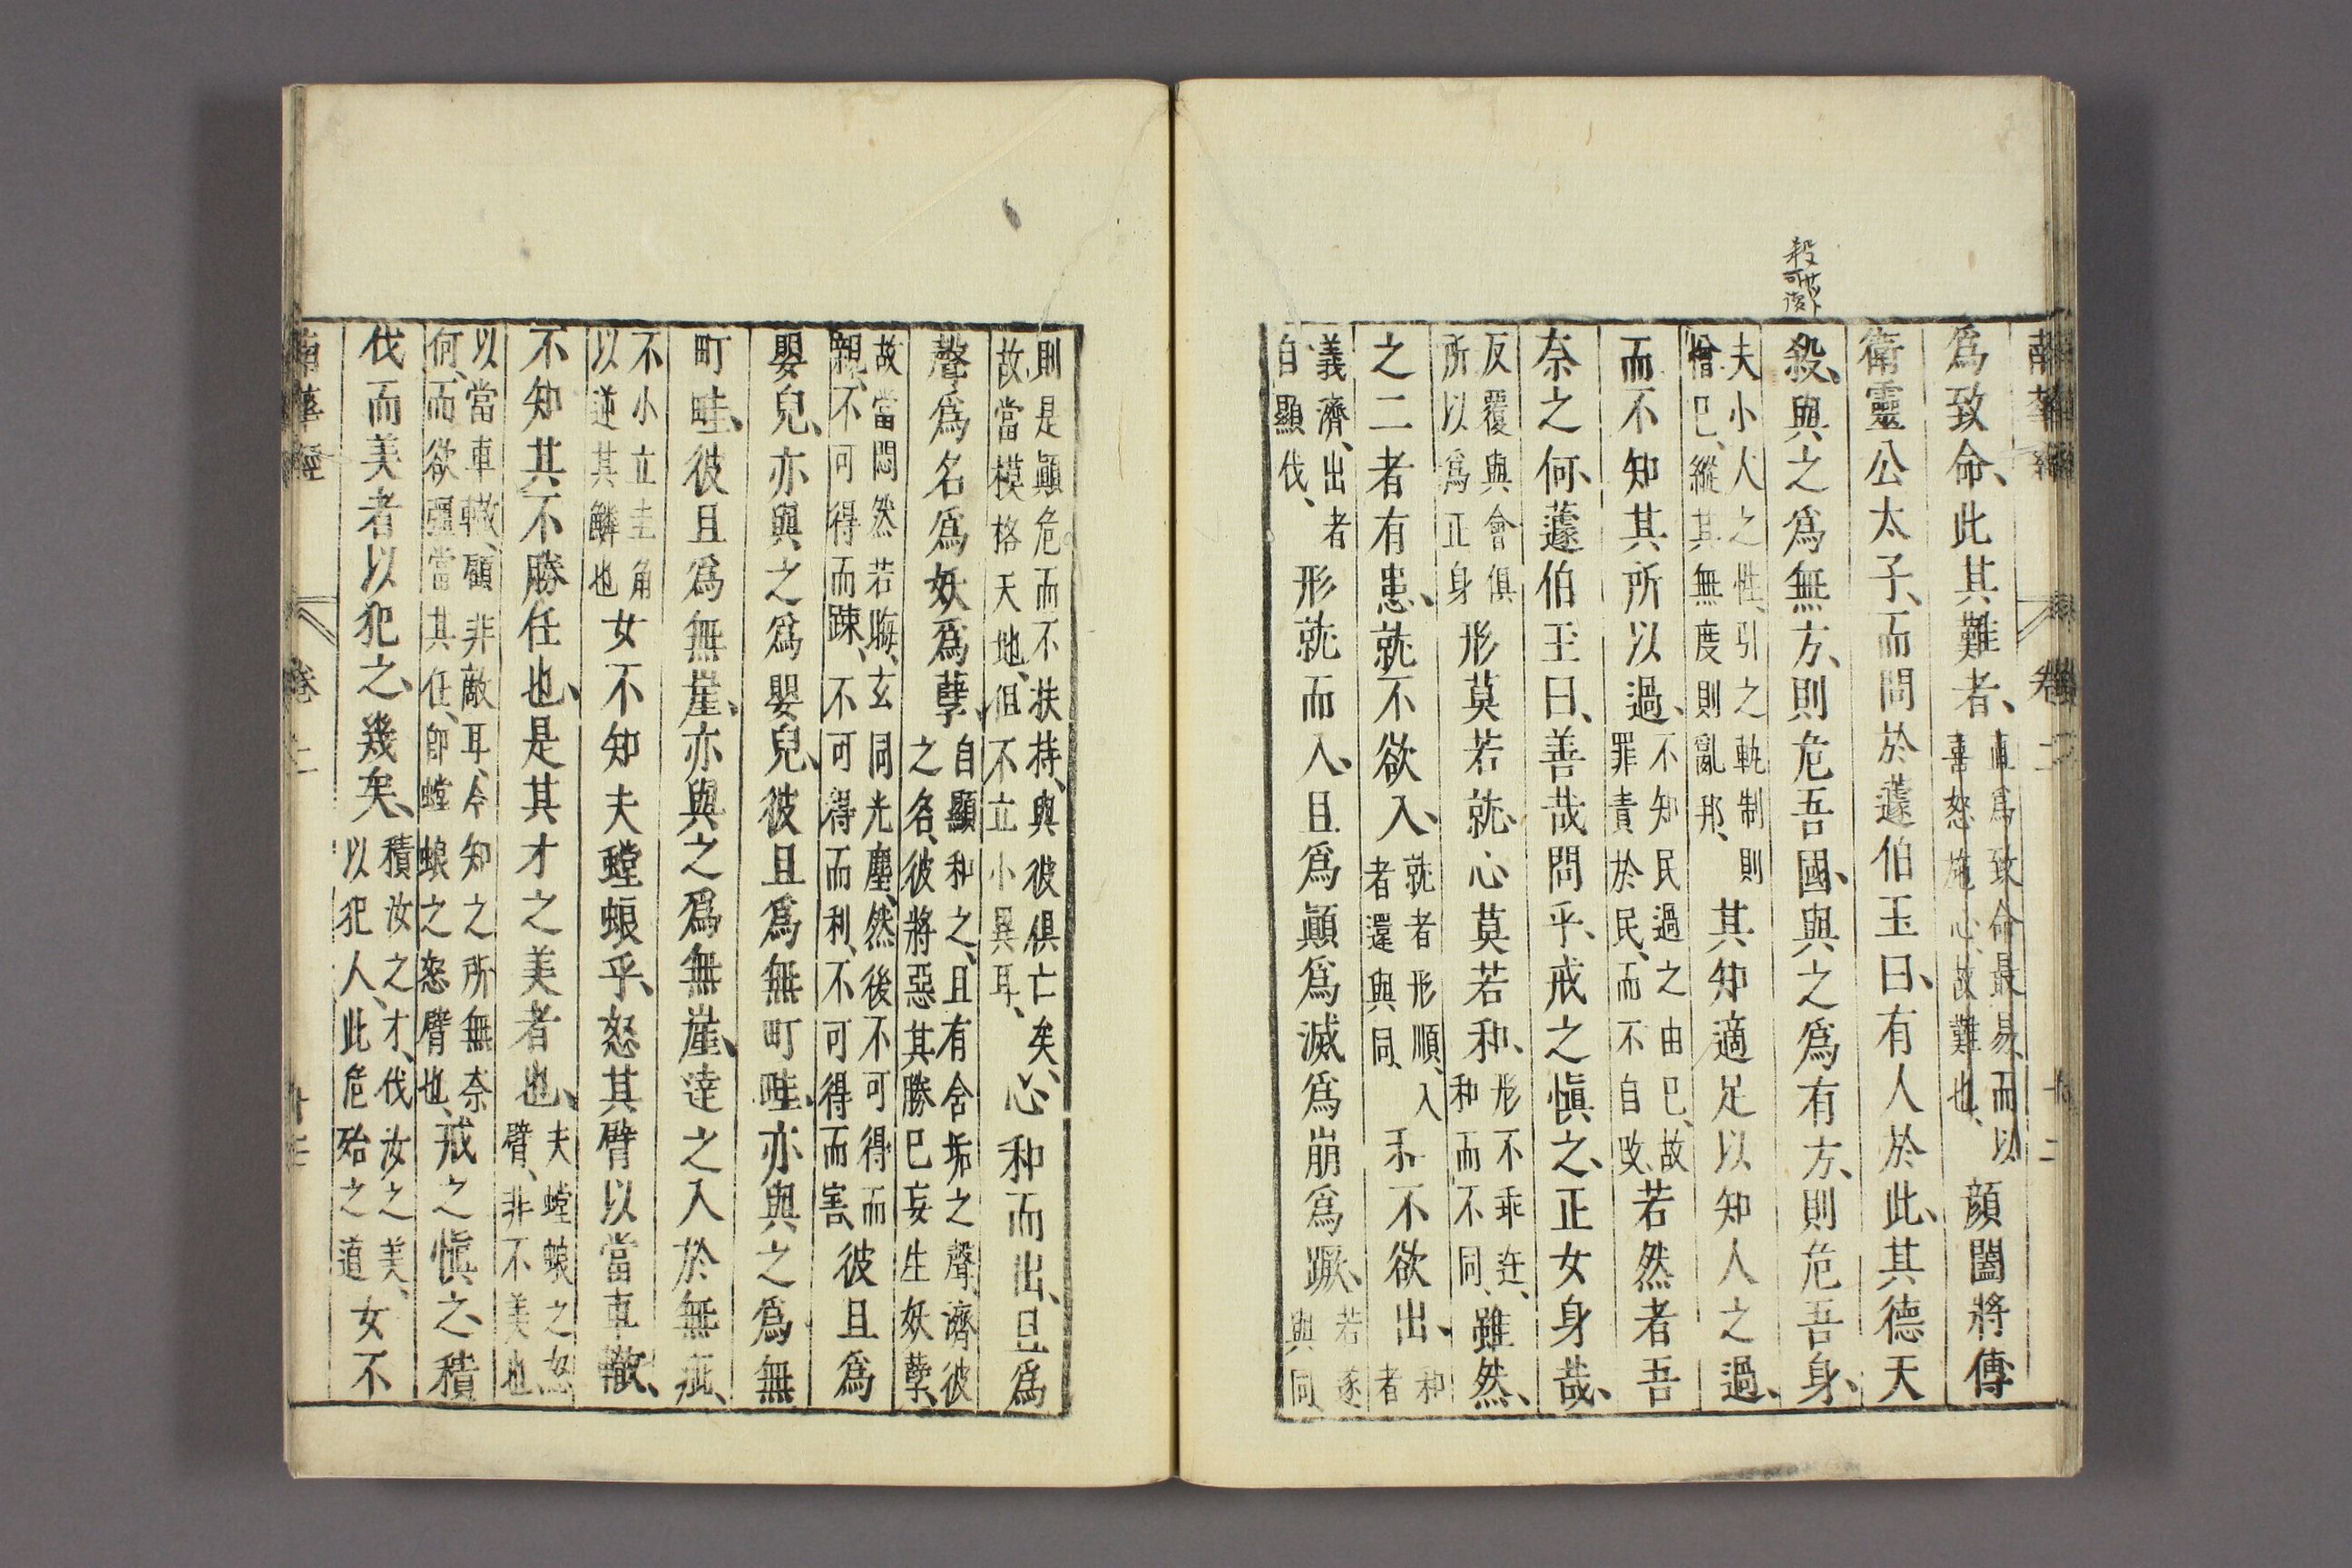 南華經 卷二 十二
爲致命、此其難者、直爲致命最易、而以喜怒施心、故難也、顏闔將傅
衛靈公太子、而問於蘧伯玉曰、有人於此、其德天
殺、與之爲無方、則危吾國、與之爲有方、則危吾身、
夫小人之性、引之軌制則憎己、縱其無度則亂邦、其知適足以知人之過、
而不知其所以過、不知民過之由己、故罪責於民、而不自改、若然者吾
奈之何、蘧伯玉曰、善哉問乎、戒之愼之、正女身哉、
反覆與會俱所以爲正身形莫若就、心莫若和、形不乖迕、和而不同、雖然、
之二者有患、就不欲入、就者形順、入者還與同、和不欲出、和者
義濟、出者自顯伐、形就而入、且爲顚爲滅爲崩爲蹶、若遂與同
則是顚危而不扶持、與彼俱亡矣、故當模格天地、但不立小異耳、心和而出、且爲
聲爲名爲妖爲孽、自顯和之、且有含垢之聲、濟彼之名、彼將惡其勝己妄生妖孽、
故當悶然若晦、玄同光塵、然後不可得而親、不可得而踈、不可得而利、不可得而害、彼且爲
嬰兒、亦與之爲嬰兒、彼且爲無町畦、亦與之爲無
町畦、彼且爲無崖、亦與之爲無崖、達之入於無疵、
不小立圭角以逆其鱗也女不知夫螳蜋乎、怒其臂以當車轍、
不知其不勝任也、是其才之美者也、夫螳蜋之怒臂、非不美也
以當車轍、顧非敵耳、今知之所無奈何、而欲彊當其任、卽螳蜋之怒臂也、戒之愼之、積
伐而美者以犯之、幾矣、積汝之才、伐汝之美、以犯人、此危殆之道女不
南華經 卷二